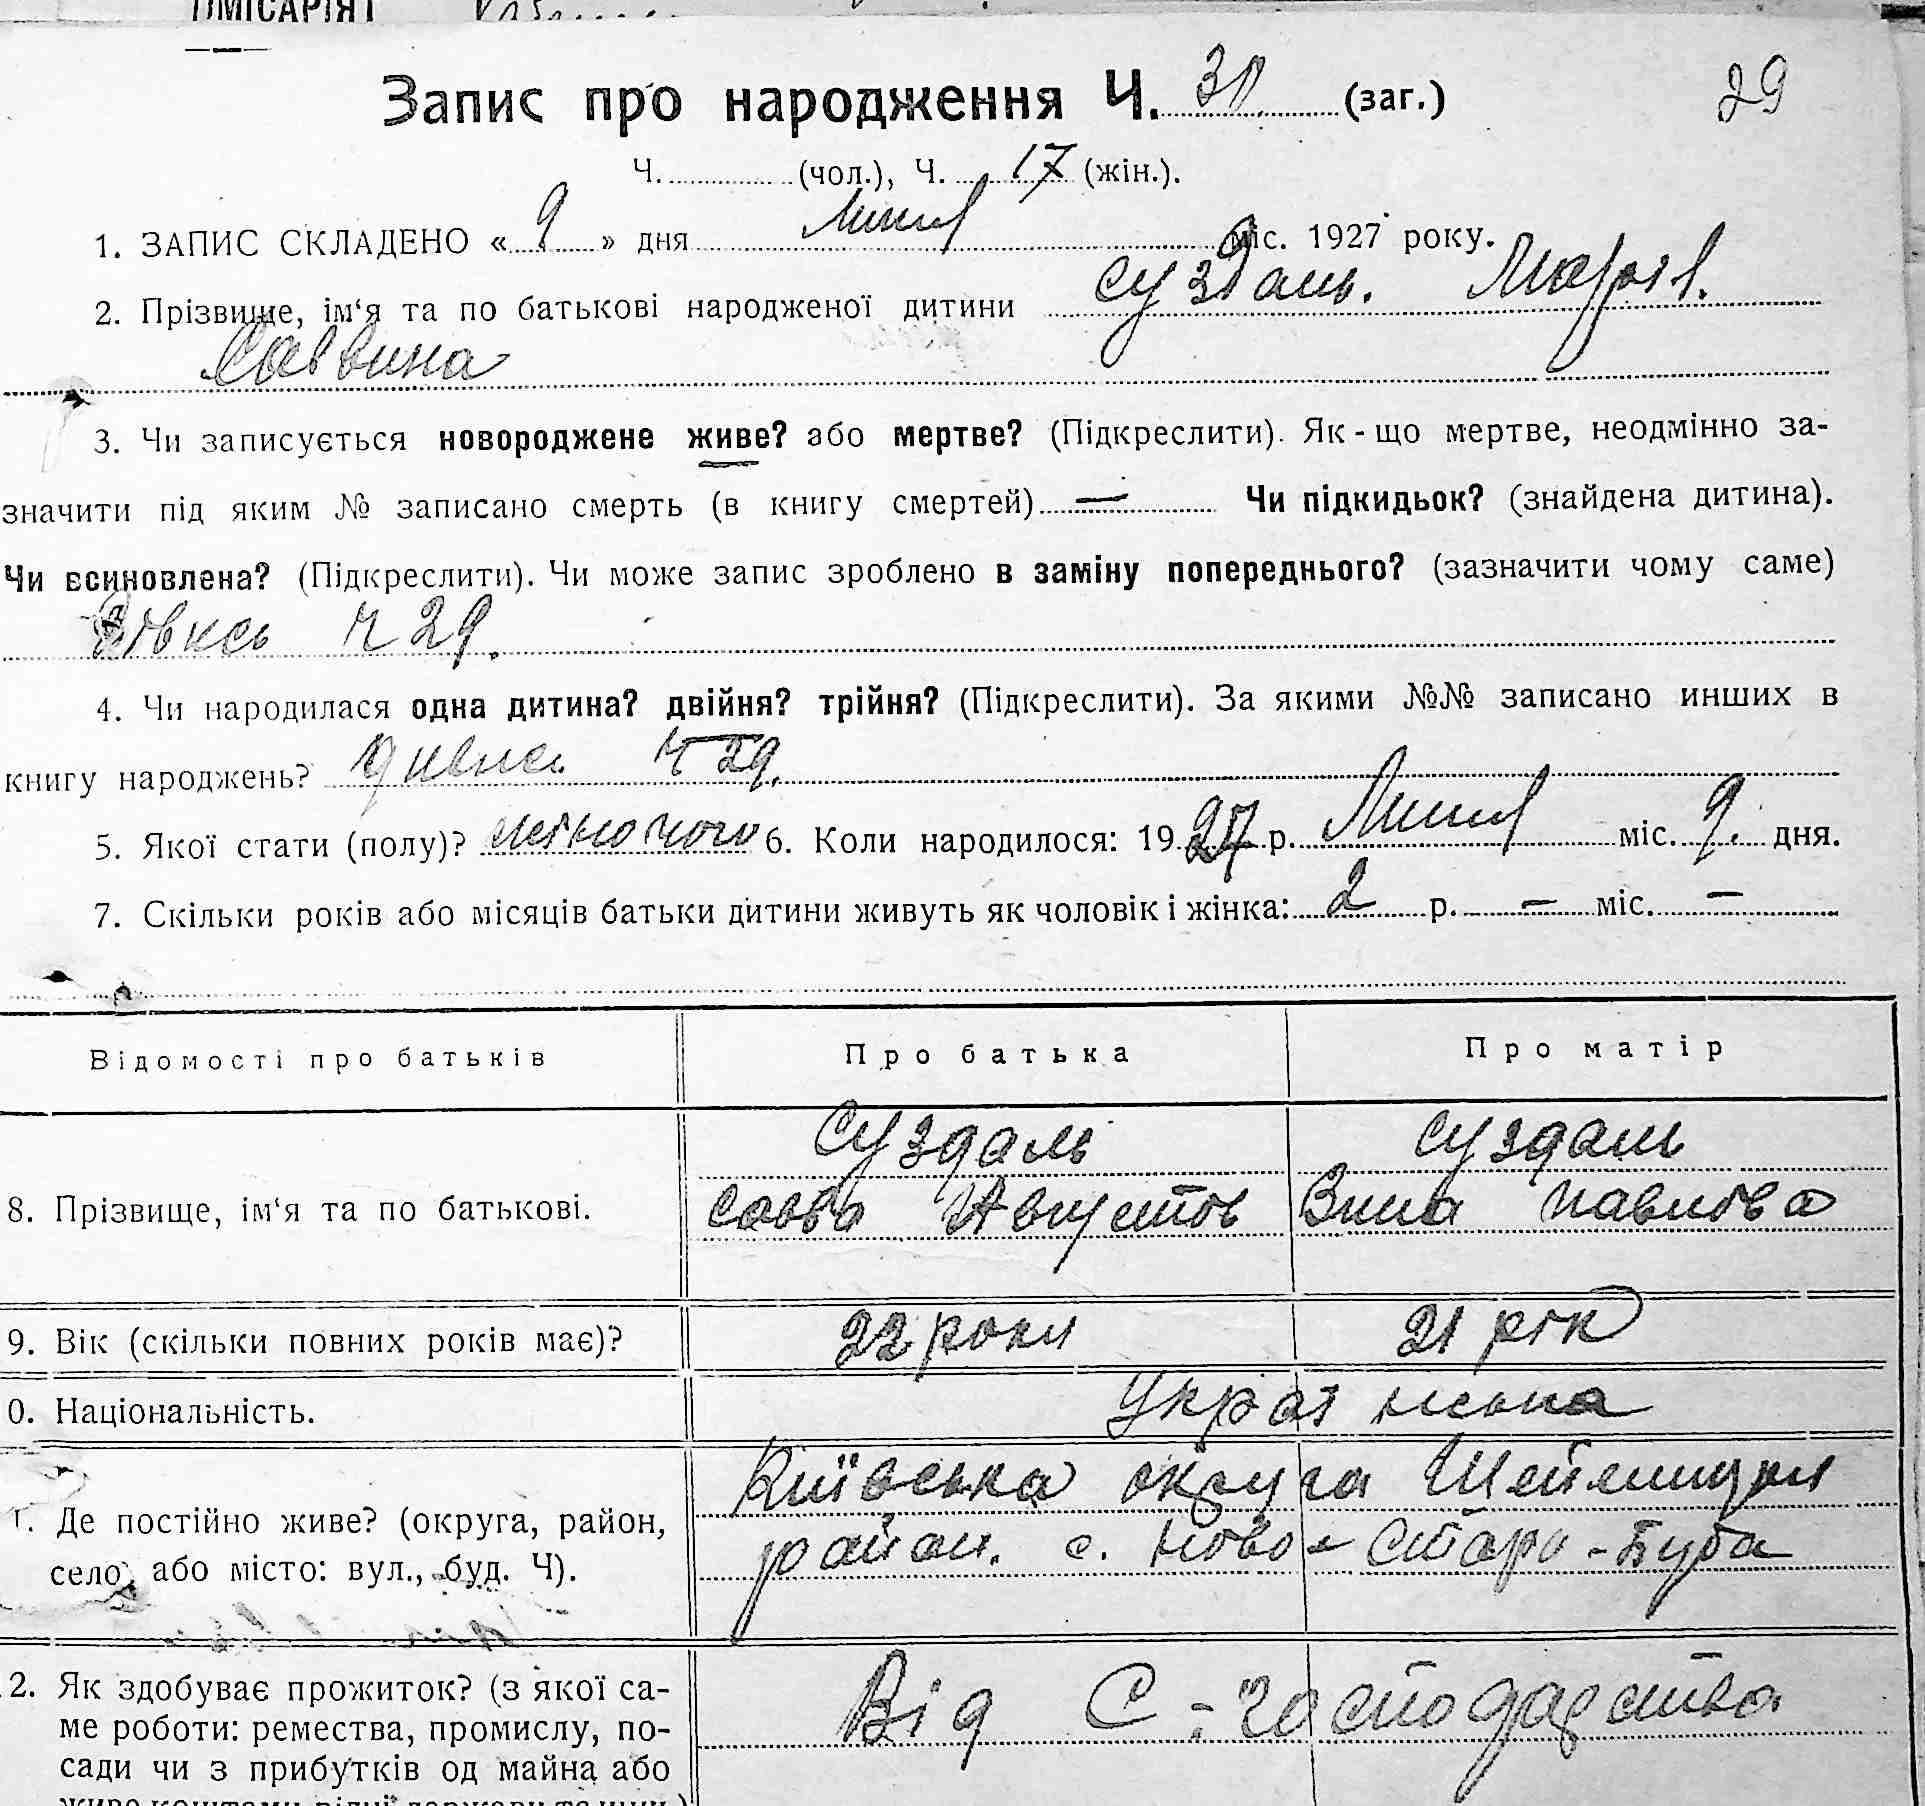 ОМІСАРІЯТ
Запис про народження Ч. 30 (заг.) 29
Ч. (чол.), Ч. 17 (жін.).
1. ЗАПИС СКЛАДЕНО « 9 » дня Липня міс. 1927 року.
2. Прізвище, ім‘я та по батькові народженої дитини Суздаль. Марія.
Саввина
3. Чи записується новороджене живе? або мертве? (Підкреслити). Як - що мертве, неодмінно за-
значити під яким № записано смерть (в книгу смертей) — Чи підкидьок? (знайдена дитина).
Чи всиновлена? (Підкреслити). Чи може запис зроблено в заміну попереднього? (зазначити чому саме)
ч 29.
4. Чи народилася одна дитина? двійня? трійня? (Підкреслити). За якими №№ записано инших в
книгу народжень? ч 29.
5. Якої стати (полу)? жіночого 6. Коли народилося: 1927 р. Липня міс. 9. дня.
7. Скільки років або місяців батьки дитини живуть як чоловік і жінка: 2 р. — міс. —
Відомості про батьків Про батька Про матір
Суздаль Суздаль
8. Прізвище, ім‘я та по батькові. Савва Августов Павлова
9. Вік (скільки повних років має)? 22 роки 21 рік
0. Національність. Українська
Київська округа
1. Де постійно живе? (округа, район, район. с. Ново-Старо-Буда
село, або місто: вул., буд. Ч).
2. Як здобуває прожиток? (з якої са- Від С-господарства
ме роботи: ремества, промислу, по-
сади чи з прибутків од майна або
живе коштами рідні, держави та инш.)